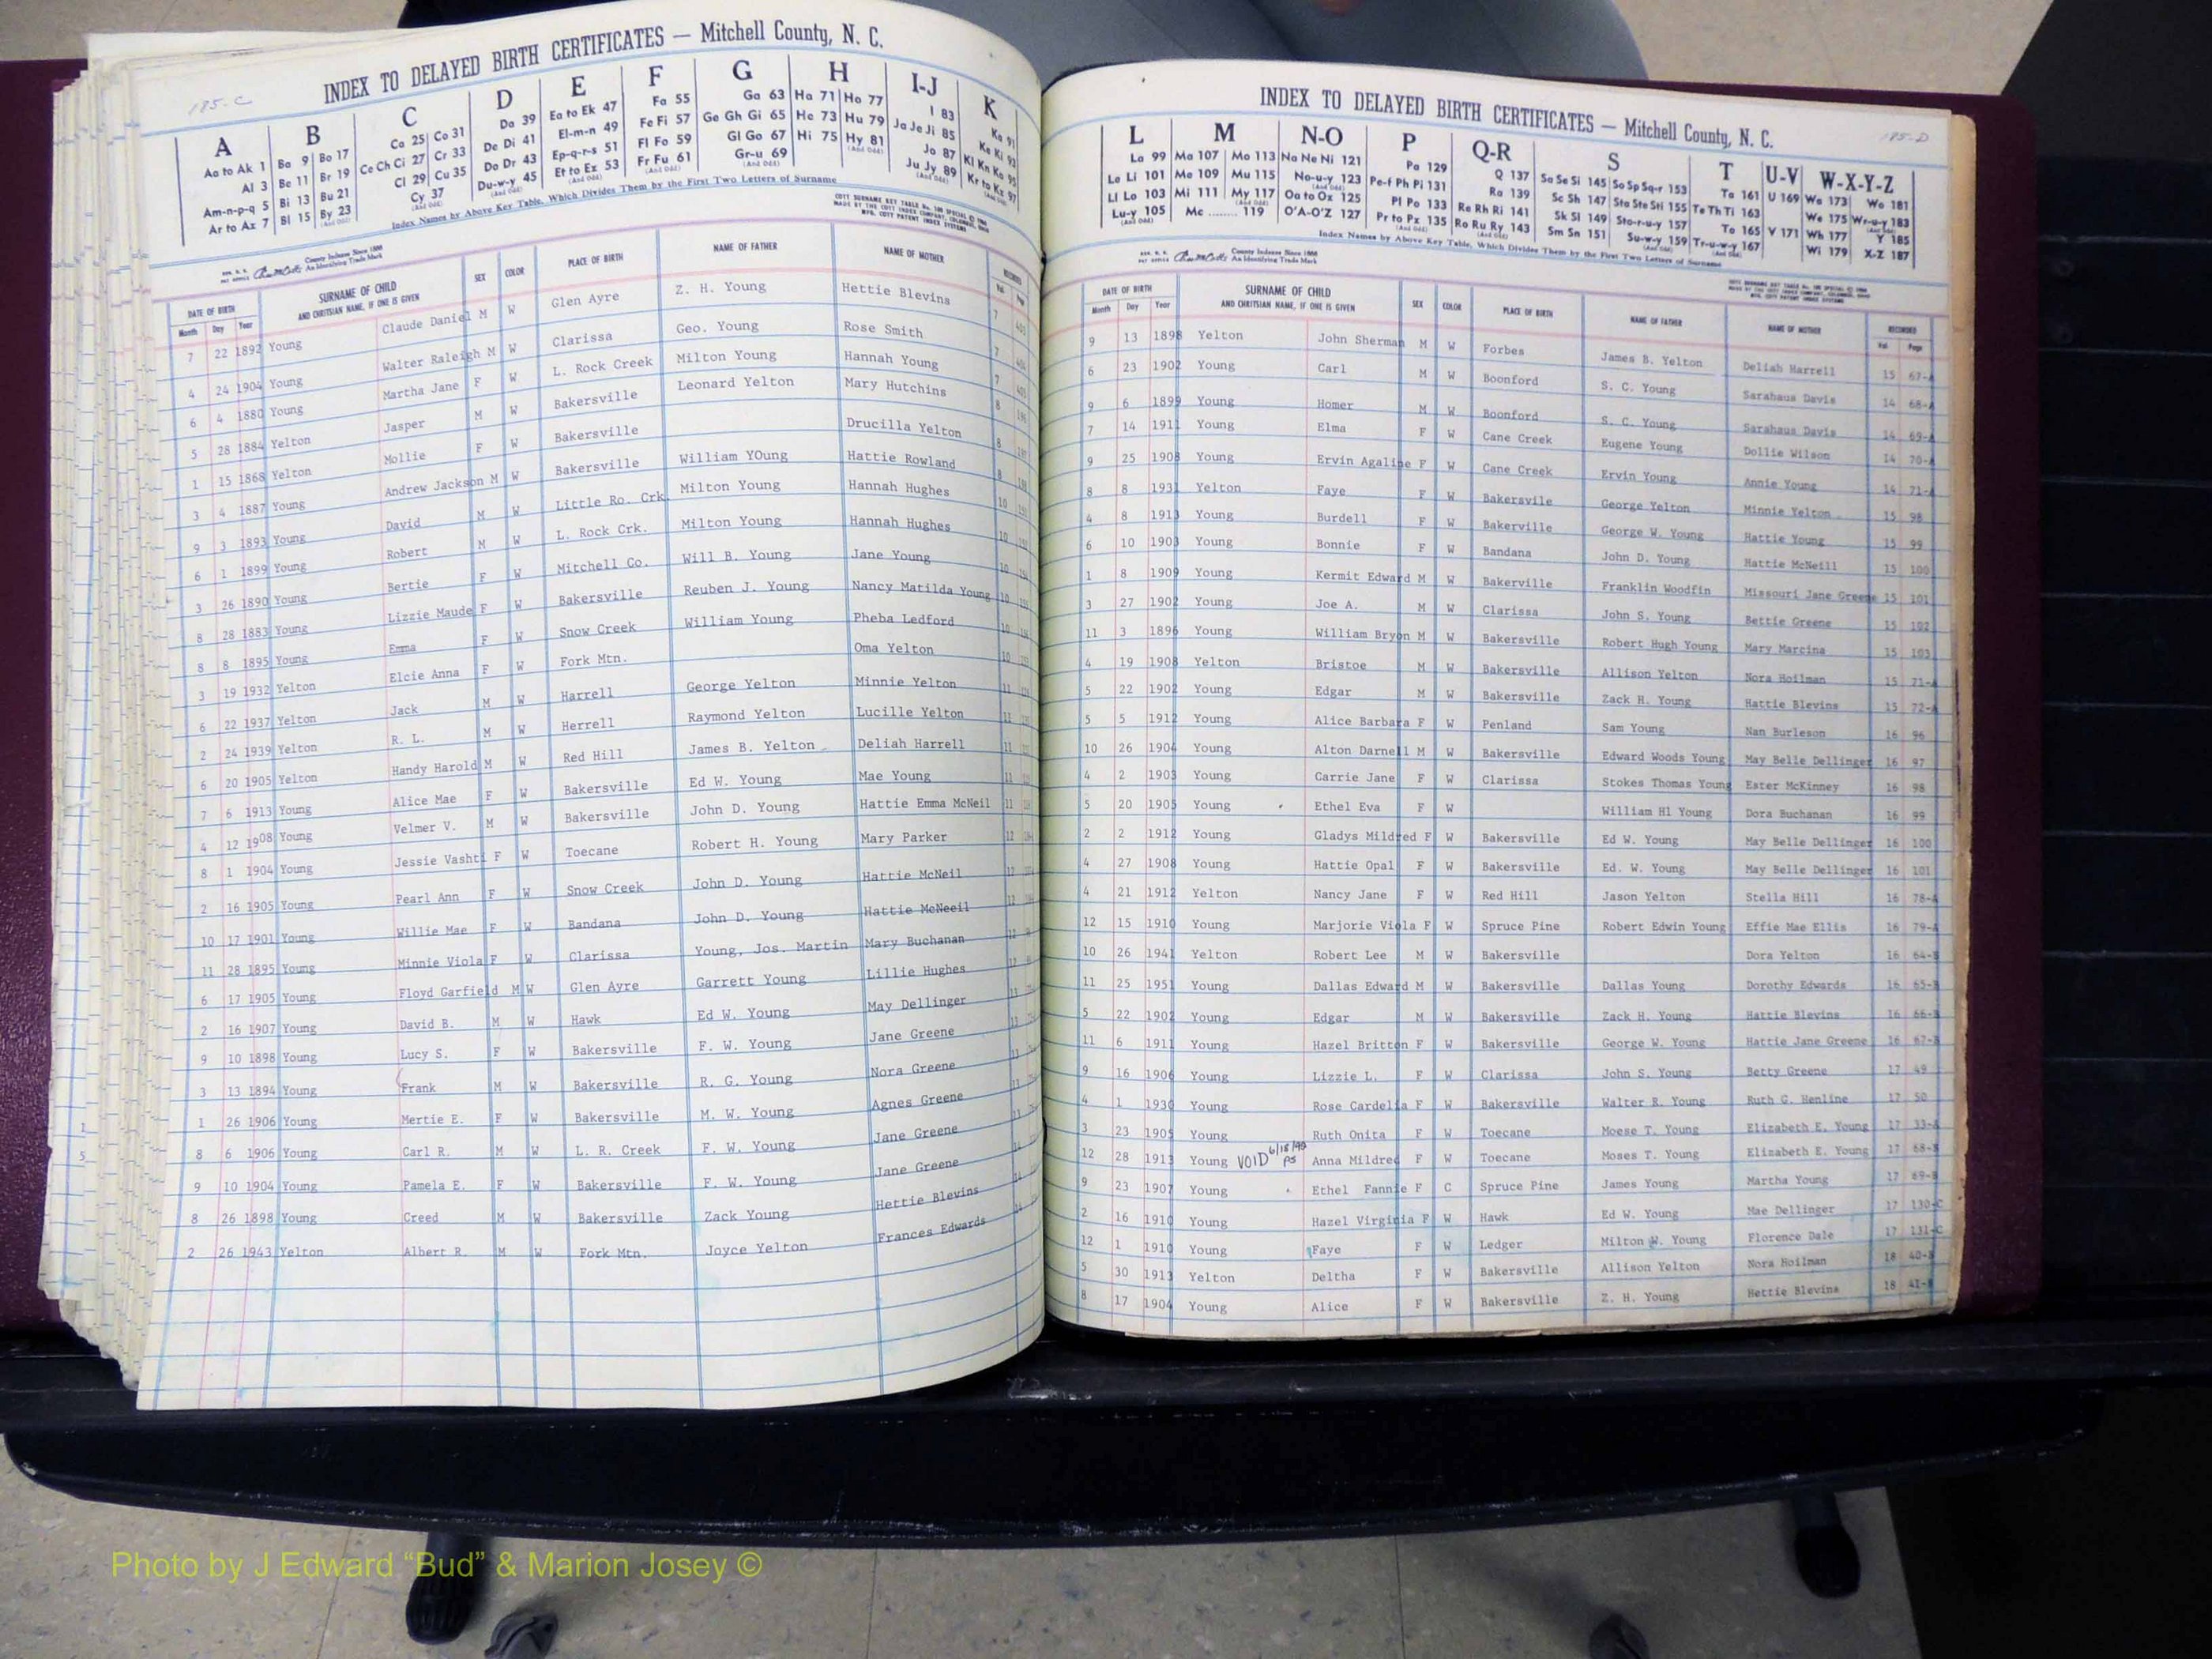 185-C
INDEX TO DELAYED BIRTH CERTIFICATES — Mitchell County, N. C.
A B C D E F G H I-J K
Aa to Ak 1 Ba 9 Bo 17 Ca 25 Co 31 Da 39 Ea to Ek 47 Fa 55 Ga 63 Ha 71 Ho 77 I 83 Ka 91
Al 3 Be 11 Br 19 Ce Ch Ci 27 Cr 33 De Di 41 El-m-n 49 Fe Fi 57 Ge Gh Gi 65 He 73 Hu 79 Ja Je Ji 85 Ke Ki 93
Am-n-p-q 5 Bi 13 Bu 21 Cl 29 Cu 35 Do Dr 43 Ep-q-r-s 51 Fl Fo 59 Gl Go 67 Hi 75 Hy 81 Jo 87 Kl Kn Ko 95
Ar to Az 7 Bl 15 By 23 Cy 37 Du-w-y 45 Et to Ez 53 Fr Fu 61 Gr-u 69 Ju Jy 89 Kr to Kz 97
Index Names by Above Key Table, Which Divides Them by the First Two Letters of Surname
County Indexes Since 1888
An Identifying Trade Mark
DATE OF BIRTH SURNAME OF CHILD SEX COLOR PLACE OF BIRTH NAME OF FATHER NAME OF MOTHER RECORDED
Month Day Year AND CHRITSIAN NAME, IF ONE IS GIVEN Vol. Page
7 22 1892 Young Claude Daniel M W Glen Ayre Z. H. Young Hettie Blevins 7
4 24 1904 Young Walter Raleigh M W Clarissa Geo. Young Rose Smith 7
6 4 1880 Young Martha Jane F W L. Rock Creek Milton Young Hannah Young 7
5 28 1884 Yelton Jasper M W Bakersville Leonard Yelton Mary Hutchins 8
1 15 1868 Yelton Mollie F W Bakersville Drucilla Yelton 8
3 4 1887 Young Andrew Jackson M W Bakersville William YOung Hattie Rowland 8
9 3 1893 Young David M W Little Ro. Crk Milton Young Hannah Hughes 10
6 1 1899 Young Robert M W L. Rock Crk. Milton Young Hannah Hughes 10
3 26 1890 Young Bertie F W Mitchell Co. Will B. Young Jane Young 10
8 28 1883 Young Lizzie Maude F W Bakersville Reuben J. Young Nancy Matilda Young 10
8 8 1895 Young Emma F W Snow Creek William Young Pheba Ledford 10
3 19 1932 Yelton Elcie Anna F W Fork Mtn. Oma Yelton 10
6 22 1937 Yelton Jack M W Harrell George Yelton Minnie Yelton 11
2 24 1939 Yelton R. L. M W Herrell Raymond Yelton Lucille Yelton 11
6 20 1905 Yelton Handy Harold M W Red Hill James B. Yelton Deliah Harrell 11
7 6 1913 Young Alice Mae F W Bakersville Ed W. Young Mae Young 11
4 12 1908 Young Velmer V. M W Bakersville John D. Young Hattie Emma McNeil 11
8 1 1904 Young Jessie Vashti F W Toecane Robert H. Young Mary Parker 12
2 16 1905 Young Pearl Ann F W Snow Creek John D. Young Hattie McNeil 12
10 17 1901 Young Willie Mae F W Bandana John D. Young Hattie McNeeil 12
11 28 1895 Young Minnie Viola F W Clarissa Young, Jos. Martin Mary Buchanan
6 17 1905 Young Floyd Garfield M W Glen Ayre Garrett Young Lillie Hughes
2 16 1907 Young David B. M W Hawk Ed W. Young May Dellinger
9 10 1898 Young Lucy S. F W Bakersville F. W. Young Jane Greene
3 13 1894 Young Frank M W Bakersville R. G. Young Nora Greene
1 26 1906 Young Mertie E. F W Bakersville M. W. Young Agnes Greene
8 6 1906 Young Carl R. M W L. R. Creek F. W. Young Jane Greene
9 10 1904 Young Pamela E. F W Bakersville F. W. Young Jane Greene
8 26 1898 Young Creed M W Bakersville Zack Young Hettie Blevins
2 26 1943 Yelton Albert R. M W Fork Mtn. Joyce Yelton Frances Edwards
185-D
INDEX TO DELAYED BIRTH CERTIFICATES — Mitchell County, N. C.
L M N-O P Q-R S T U-V W-X-Y-Z
La 99 Ma 107 Mo 113 Na Ne Ni 121 Pa 129 Q 137 Sa Se Si 145 So Sp Sq-r 153 Ta 161 U 169 Wa 173 Wo 181
Le Li 101 Me 109 Mu 115 No-u-y 123 Pe-f Ph Pi 131 Ra 139 Sc Sh 147 Sta Ste Sti 155 Te Th Ti 163 V 171 We 175 Wr-u-y 183
Ll Lo 103 Mi 111 My 117 Oa to Oz 125 Pl Po 133 Re Rh Ri 141 Sk Sl 149 Sto-r-u-y 157 To 165 Wh 177 Y 185
Lu-y 105 Mc ........ 119 O'A-O'Z 127 Pr to Pz 135 Ro Ru Ry 143 Sm Sn 151 Su-w-y 159 Tr-u-w-y 167 Wi 179 X-Z 187
Index Names by Above Key Table, Which Divides Them by the First Two Letters of Surname
County Indexes Since 1888
An Identifying Trade Mark
DATE OF BIRTH SURNAME OF CHILD SEX COLOR PLACE OF BIRTH NAME OF FATHER NAME OF MOTHER RECORDED
Month Day Year AND CHRITSIAN NAME, IF ONE IS GIVEN Vol. Page
9 13 1898 Yelton John Sherman M W Forbes James B. Yelton Deliah Harrell 15 67-A
6 23 1902 Young Carl M W Boonford S. C. Young Sarahaus Davis 14 68-A
9 6 1899 Young Homer M W Boonford S. C. Young Sarahaus Davis 14 69-A
7 14 1911 Young Elma F W Cane Creek Eugene Young Dollie Wilson 14 70-A
9 25 1908 Young Ervin Agaline F W Cane Creek Ervin Young Annie Young 14 71-A
8 8 1931 Yelton Faye F W Bakersvile George Yelton Minnie Yelton 15 98
4 8 1913 Young Burdell F W Bakerville George W. Young Hattie Young 15 99
6 10 1903 Young Bonnie F W Bandana John D. Young Hattie McNeill 15 100
1 8 1909 Young Kermit Edward M W Bakerville Franklin Woodfin Missouri Jane Greene 15 101
3 27 1902 Young Joe A. M W Clarissa John S. Young Bettie Greene 15 102
11 3 1896 Young William Bryon M W Bakersville Robert Hugh Young Mary Marcina 15 103
4 19 1908 Yelton Bristoe M W Bakersville Allison Yelton Nora Hoilman 15 71-A
5 22 1902 Young Edgar M W Bakersville Zack H. Young Hattie Blevins 15 72-A
5 5 1912 Young Alice Barbara F W Penland Sam Young Nan Burleson 16 96
10 26 1904 Young Alton Darnell M W Bakersville Edward Woods Young May Belle Dellinger 16 97
4 2 1903 Young Carrie Jane F W Clarissa Stokes Thomas Young Ester McKinney 16 98
5 20 1905 Young Ethel Eva F W William Hl Young Dora Buchanan 16 99
2 2 1912 Young Gladys Mildred F W Bakersville Ed W. Young May Belle Dellinger 16 100
4 27 1908 Young Hattie Opal F W Bakersville Ed. W. Young May Belle Dellinger 16 101
4 21 1912 Yelton Nancy Jane F W Red Hill Jason Yelton Stella Hill 16 78-A
12 15 1910 Young Marjorie Viola F W Spruce Pine Robert Edwin Young Effie Mae Ellis 16 79-A
10 26 1941 Yelton Robert Lee M W Bakersville Dora Yelton 16 64-B
11 25 1951 Young Dallas Edward M W Bakersville Dallas Young Dorothy Edwards 16 65-B
5 22 1902 Young Edgar M W Bakersville Zack H. Young Hattie Blevins 16 66-B
11 6 1911 Young Hazel Britton F W Bakersville George W. Young Hattie Jane Greene 16 67-B
9 16 1906 Young Lizzie L. F W Clarissa John S. Young Betty Greene 17 49
4 1 1930 Young Rose Cardelia F W Bakersville Walter R. Young Ruth G. Henline 17 50
3 23 1905 Young Ruth Onita F W Toecane Moese T. Young Elizabeth E. Young 17 33-A
12 28 1913 Young VOID PS Anna Mildred F W Toecane Moses T. Young Elizabeth E. Young 17 68-B
9 23 1907 Young Ethel Fannie F C Spruce Pine James Young Martha Young 17 69-B
2 16 1910 Young Hazel Virginia F W Hawk Ed W. Young Mae Dellinger 17 130-C
12 1 1910 Young Faye F W Ledger Milton W. Young Florence Dale 17 131-C
5 30 1913 Yelton Deltha F W Bakersville Allison Yelton Nora Hoilman 18 40-B
8 17 1904 Young Alice F W Bakersville Z. H. Young Hettie Blevins 18 41-B
Photo by J Edward “Bud” & Marion Josey ©